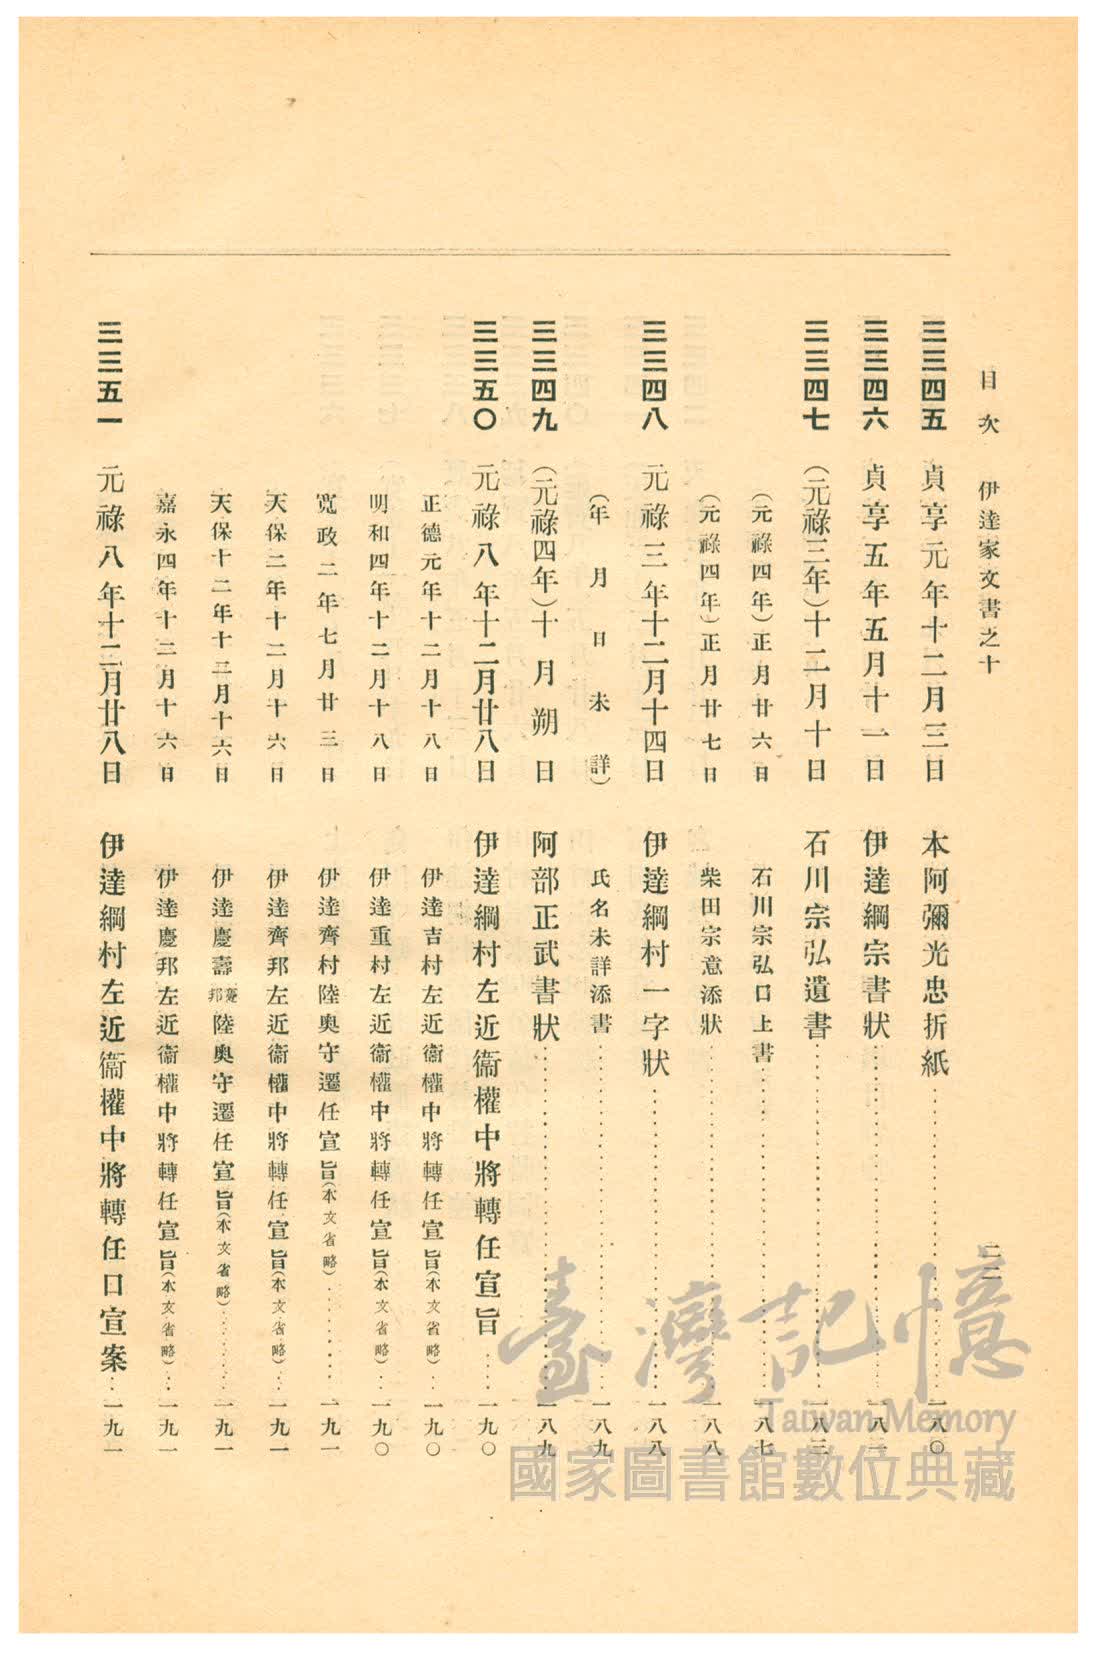 目次　伊達家文書之十　二二
三三四五　貞享元年十二月三日　本阿彌光忠折紙……一八〇
三三四六　貞享五年五月十一日　伊達綱宗書狀……一八二
三三四七　(元祿三年)十二月十日　石川宗弘遺書……一八三
(元祿四年)正月廿六日　石川宗弘口上書……一八七
(元祿四年)正月廿七日　柴田宗意添狀……一八八
三三四八　元祿三年十二月十四日　伊達綱村一字狀……一八八
(年月日未詳)　氏名未詳添書……一八九
三三四九　(元祿四年)十月朔日　阿部正武書狀……一八九
三三五〇　元祿八年十二月廿八日　伊達綱村左近衞權中將轉任宣旨……一九〇
正德元年十二月十八日　伊達吉村左近衞權中將轉任宣旨(本文省略)……一九〇
明和四年十二月十八日　伊達重村左近衞權中將轉任宣旨(本文省略)……一九〇
寬政二年七月廿三日　伊達齊村陸奧守遷任宣旨(本文省略)……一九一
天保二年十二月十六日　伊達齊邦左近衞權中將轉任宣旨(本文省略)……一九一
天保十二年十二月十六日　伊達慶壽慶邦陸奧守遷任宣旨(本文省略)……一九一
嘉永四年十二月十六日　伊達慶邦左近衞權中將轉任宣旨(本文省略)……一九一
三三五一　元祿八年十二月廿八日　伊達綱村左近衞權中將轉任口宣案……一九一
臺灣記憶
Taiwan Memory
國家圖書館數位典藏